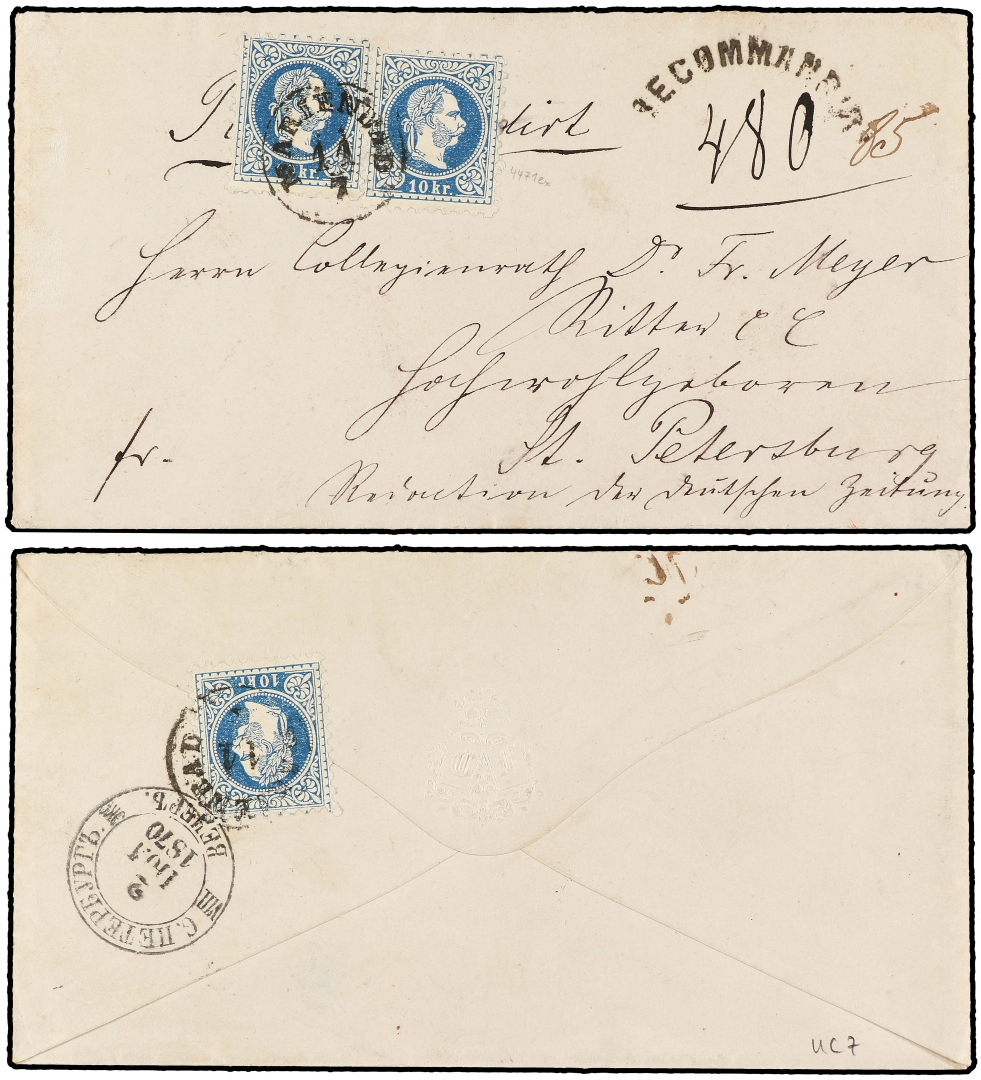 RECOMMANDIRT
480
85
MARIENBAD
11
7
10 kr.
10 kr.
4471ex
Herrn Collegienrath Dr. Fr. Meyer
Ritter
Hochwohlgeboren
fr.
St. Petersburg
Redaction der deutschen Zeitung.
10 kr
11
С. ПЕТЕРБУРГЪ.
2
ІЮЛ
1870
ВЕЧЕРЪ.
VIII
UC7